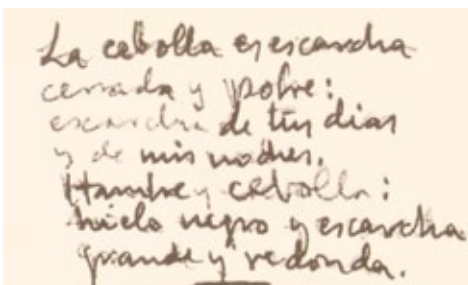 La cebolla es escarcha
cerrada y pobre:
escarcha de tus dias
y de mis noches.
Hambre y cebolla:
hielo negro y escarcha
grande y redonda.